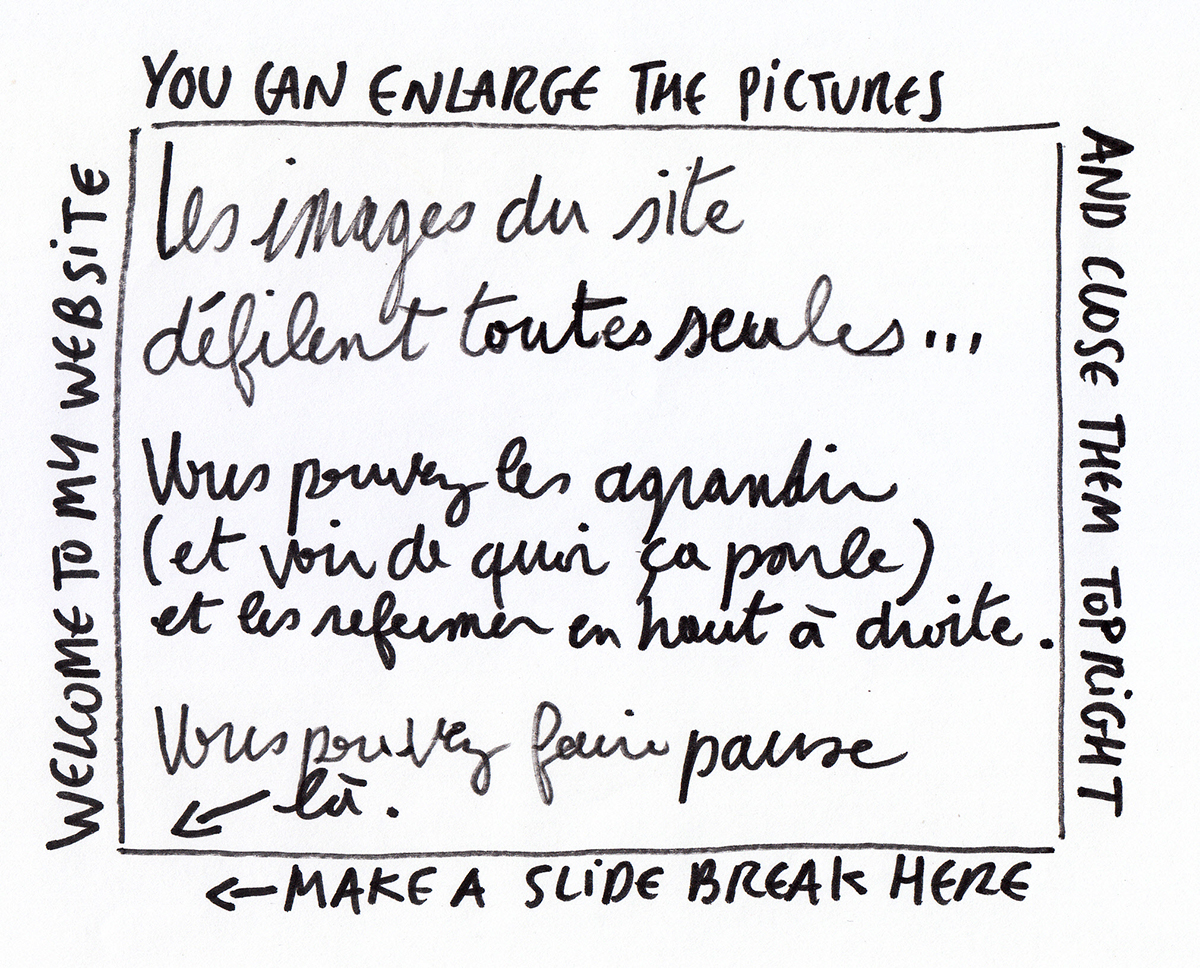 WELCOME TO MY WEBSITE
YOU CAN ENLARGE THE PICTURES
AND CLOSE THEM TOP RIGHT
Les images du site
défilent toutes seules...
Vous pouvez les agrandir
(et voir de quoi ça parle)
et les refermer en haut à droite.
Vous pouvez faire pause
← là.
← MAKE A SLIDE BREAK HERE